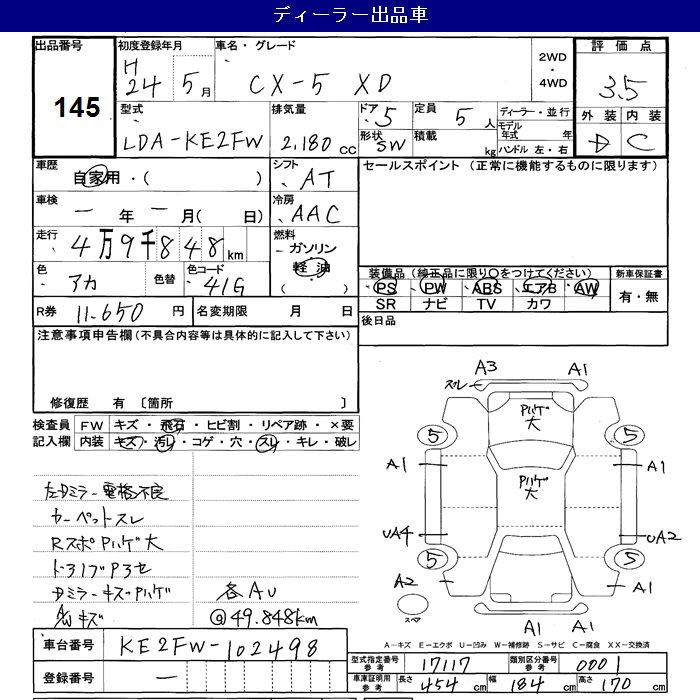 ディーラー出品車
出品番号 145
初度登録年月 H 24 5月
車名・グレード CX-5 XD
2WD・4WD
評価点 3.5
外装 D 内装 C
型式 LDA-KE2FW
排気量 2.180 cc
ドア 5
形状 SW
定員 5人
積載 kg
ディーラー・並行
モデル年式 年
ハンドル 左・右
車歴 自家用・( )
シフト AT
セールスポイント (正常に機能するものに限ります)
車検 一年一月( 日)
冷房 AAC
走行 4万9千848km
燃料 ガソリン 軽油 ( )
色 アカ 色替
色コード 41G
装備品 (純正品に限り○をつけてください)
新車保証書 有・無
PS PW ABS エアB AW
SR ナビ TV カワ
R券 11.650 円
名変期限 月 日
後日品
注意事項申告欄 (不具合内容等は具体的に記入して下さい)
修復歴 有 〔箇所 〕
検査員記入欄
FW キズ・飛石・ヒビ割・リペア跡・×要
内装 キズ・汚レ・コゲ・穴・スレ・キレ・破レ
左Dミラー電格不良
カーペットスレ
RスポPハゲ大
Dミラーキズ・Pハゲ
キズ
各AU
@49.848km
A3 A1
スレ
Pハゲ大
5 5
A1 A1
Pハゲ大
UA4 UA2
5 5
A2 A1
スペア
A1 A1
A-キズ E-エクボ U-凹み W-補修跡 S-サビ C-腐食 XX-交換済
車台番号 KE2FW-102498
登録番号 ー
型式指定番号 参考 17117
類別区分番号 参考 0001
車庫証明用 参考 長さ 454 cm 幅 184 cm 高さ 170 cm